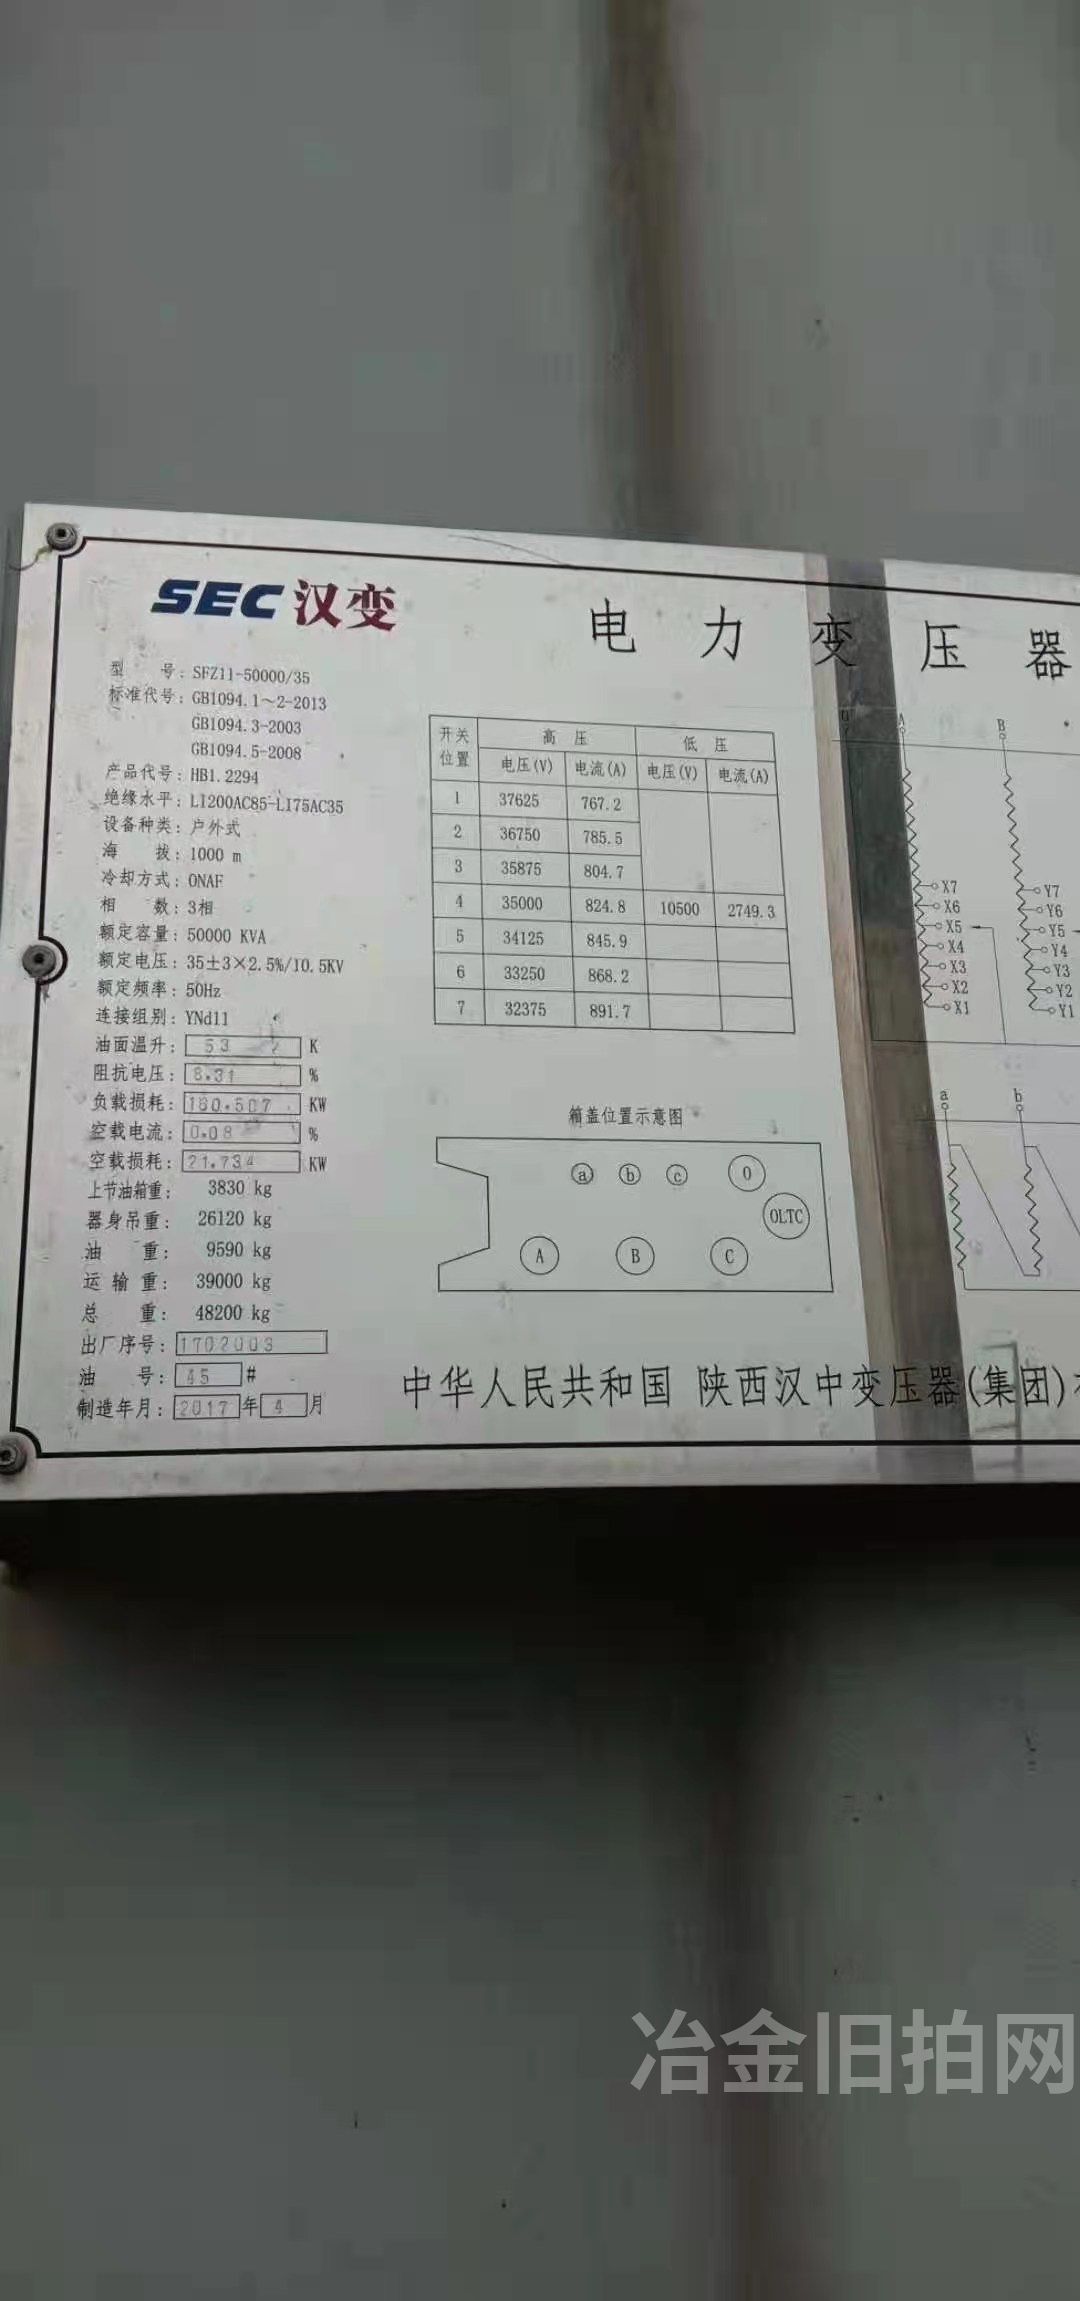 SEC 汉变
电力变压器
型号：SFZ11-50000/35
标准代号：GB1094.1～2-2013
GB1094.3-2003
GB1094.5-2008
产品代号：HB1.2294
绝缘水平：LI200AC85-LI75AC35
设备种类：户外式
海拔：1000 m
冷却方式：ONAF
相数：3相
额定容量：50000 KVA
额定电压：35±3×2.5%/10.5KV
额定频率：50Hz
连接组别：YNd11
油面温升：53 K
阻抗电压：8.31 %
负载损耗：180.507 KW
空载电流：0.08 %
空载损耗：21.734 KW
上节油箱重：3830 kg
器身吊重：26120 kg
油重：9590 kg
运输重：39000 kg
总重：48200 kg
出厂序号：1702003
油号：45 #
制造年月：2017年4月
开关位置 高压 低压
电压(V) 电流(A) 电压(V) 电流(A)
1 37625 767.2
2 36750 785.5
3 35875 804.7
4 35000 824.8 10500 2749.3
5 34125 845.9
6 33250 868.2
7 32375 891.7
箱盖位置示意图
a b c 0
OLTC
A B C
A B
X7 Y7
X6 Y6
X5 Y5
X4 Y4
X3 Y3
X2 Y2
X1 Y1
a b
中华人民共和国 陕西汉中变压器(集团)
冶金旧拍网